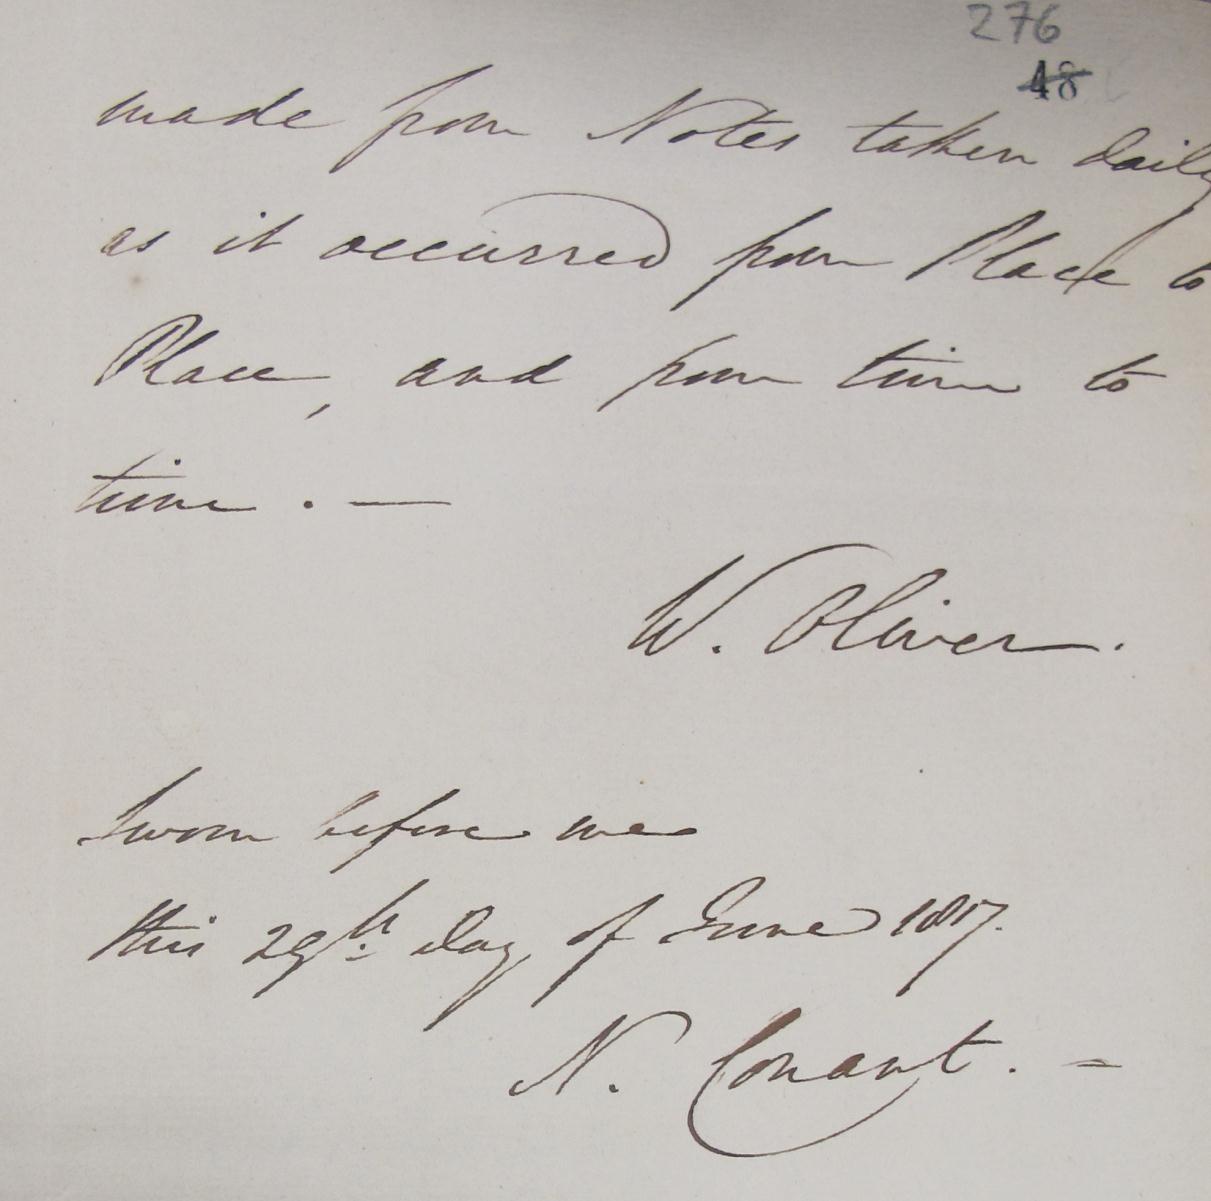 276
48
made from Notes taken daily
as it occurred from Place to
Place, and from time to
time . —
W. Oliver.
Sworn before me
this 29th day of June 1817.
N. Conant. —